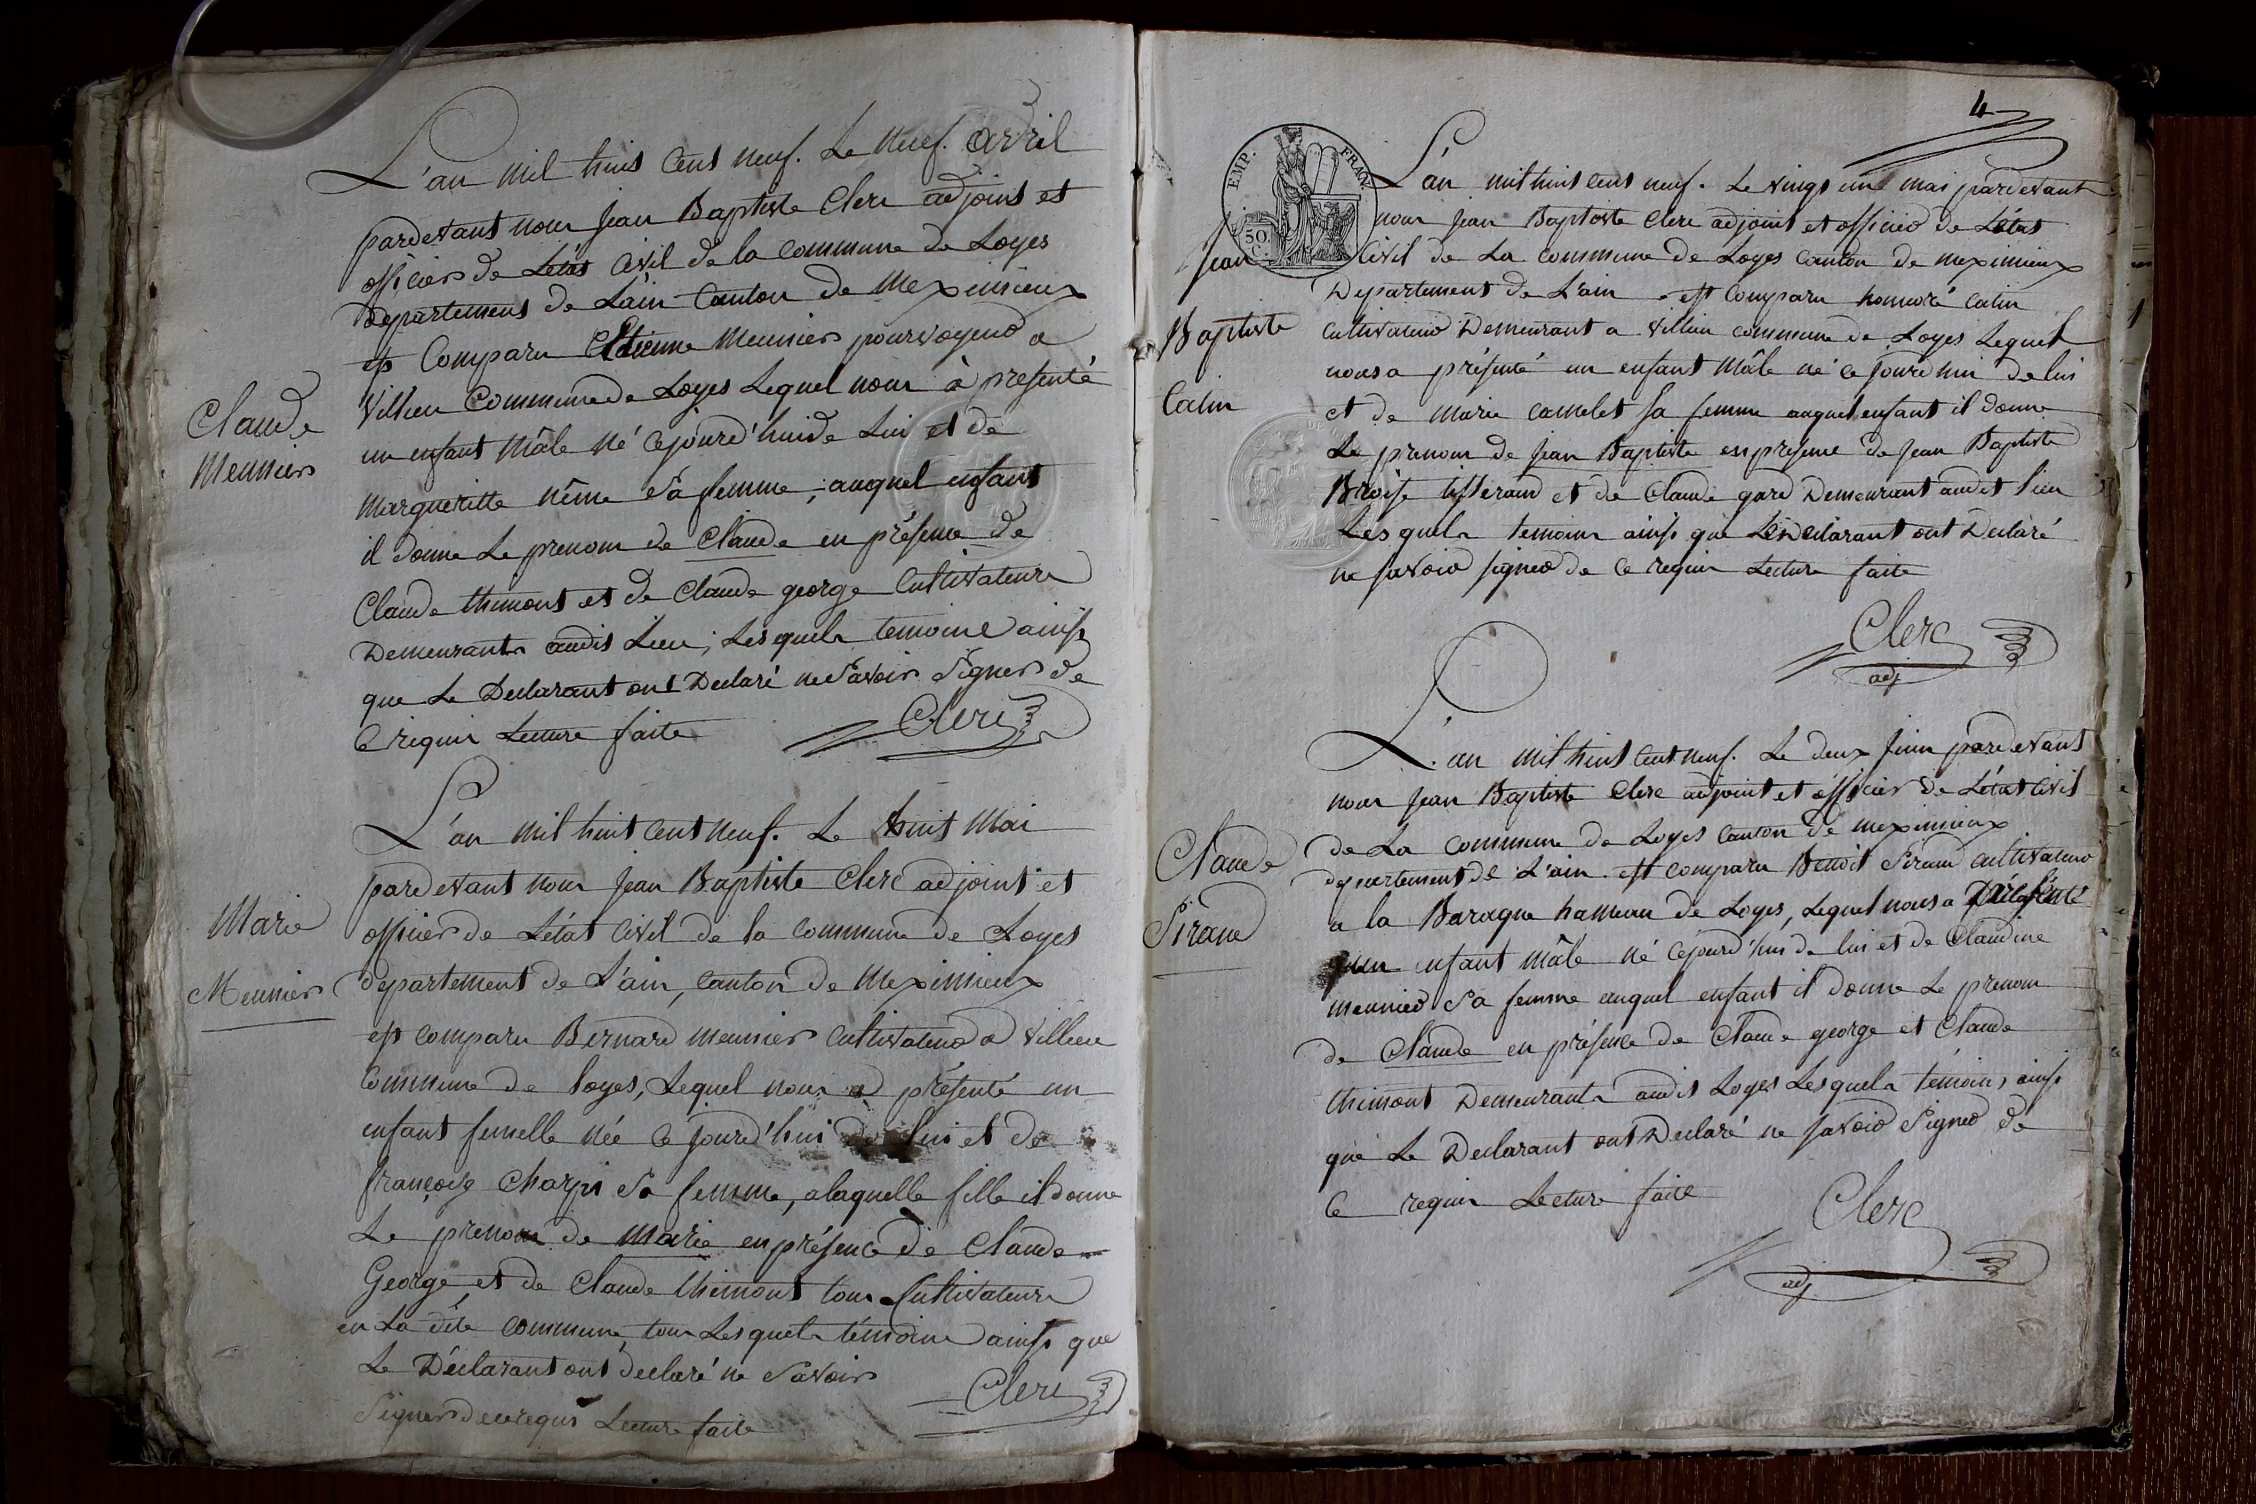 L'an mil huit cent neuf. Le neuf. avril
pardevant nous jean Baptiste Clerc adjoint et
officier de L'état Civil de la commune de Loyes
departement de L'ain Canton de Meximieux
est Comparu Etienne Meunier pourvoyeur a
Villieu Commune de Loyes Lequel nous à présenté
un enfant Mâle né cejourd'hui de Lui et de
Margueritte Nême Sa femme, auquel enfant
il donne Le prenom de Claude en présence de
Claude thimont et de Claude george Cultivateurs
Demeurants audit Lieu, Lesquels temoins ainsi
que Le Declarant ont Declaré ne Savoir Signer de
Ce requis Lecture faite
Clerc
Claude
Meunier
L'an mil huit cent neuf. Le huit Mai
pardevant nous jean Baptiste Clerc adjoint et
officier de L'état Civil de la commune de Loyes
departement de L'ain, canton de Meximieux
est comparu Bernard meunier Cultivateur a Villieu
Commune de Loyes, Lequel nous a présenté un
enfant femelle née Ce jourd'hui de lui et de
françoise Charpi Sa femme, a laquelle fille il donne
Le prenom de Marie en présence de Claude
George et de Claude thimont tous Cultivateurs
en La dite commune, tous Lesquels témoins ainsi que
Le Déclarant ont déclaré ne Savoir
Signer de ce requis Lecture faite
Clerc
Marie
Meunier
4
EMP. FRAN.
50.
C.
L'an mil huit cent neuf. Le vingt un mai pardevant
nous jean Baptiste Clerc adjoint et officier de L'état
Civil de La commune de Loyes canton de meximieux
Departement de L'ain est comparu honnoré Catin
Cultivateur Demeurant a Villieu commune de Loyes Lequel
nous a présenté un enfant Mâle né ce jourd'hui de lui
et de marie camelet sa femme auquel enfant il donne
Le prenom de jean Baptiste en présence de jean Baptiste
Broise tisserand et de Claude gard Demeurant audit lieu
Lesquels temoins ainsi que Le Declarant ont Declaré
ne savoir signer de Ce requis Lecture faite
Clerc
adj
jean
Baptiste
Catin
L'an mil huit cent neuf. Le deux juin pardevant
nous jean Baptiste Clerc adjoint et officier de L'état Civil
de La commune de Loyes canton de meximieux
departement de L'ain est comparu Benoit Siraud cultivateur
a la Baraque hameau de Loyes, Lequel nous a présenté
un enfant Mâle né cejourd'hui de lui et de Claudine
meunier Sa femme auquel enfant il donne Le prenom
de Claude en présence de Claude george et Claude
thimont Demeurants audit Loyes Lesquels témoins ainsi
que Le Declarant ont Declaré ne savoir Signer de
Ce requis Lecture faite
Clerc
adj
Claude
Siraud